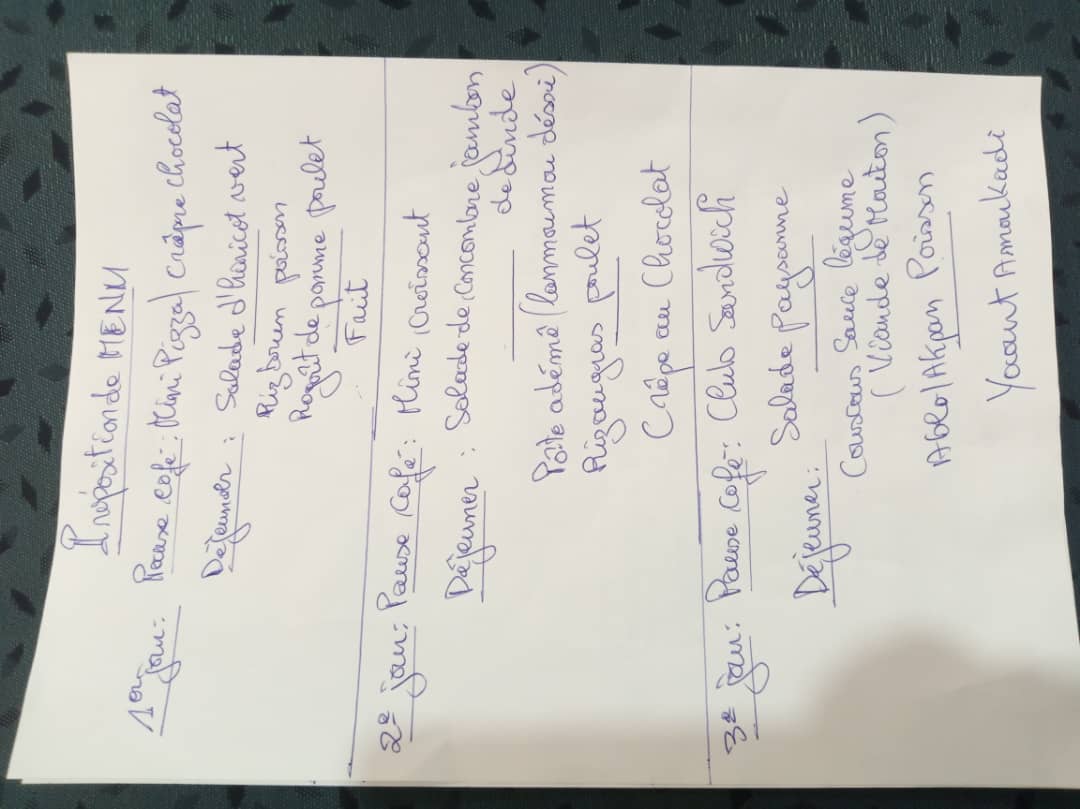 Proposition de MENU
1er jour: Pause café: Mini Pizza/ Crêpe chocolat
Déjeuner : Salade d'haricot vert
Riz brun poisson
Ragoût de pomme poulet
Fruit
2e jour: Pause Café: Mini Croissant
Déjeuner : Salade de Concombre jambon
de dinde
Pâte adémè (lanmoumou déssi)
Riz au gras poulet
Crêpe au Chocolat
3e jour: Pause Café: Club Sandwich
Salade Paysanne
Déjeuner:
Couscous Sauce légume
(Viande de Mouton)
Ablo/Akpan Poisson
Yaourt Amoukadi